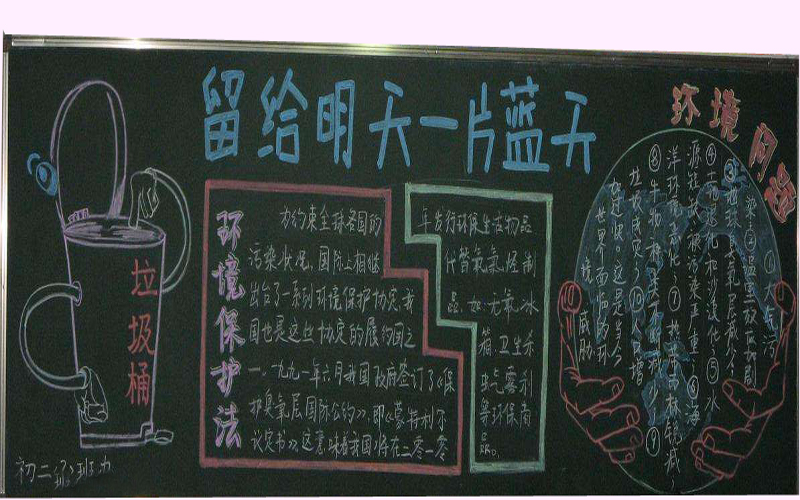 留给明天一片蓝天
垃圾桶
初二 班 办
环境保护法
为约束全球各国的
污染状况，国际上相继
出台了一系列环境保护协定，我
国也是这些协定的履约国之
一。一九九一年六月我国政府签订了《保
护臭氧层国际公约》，即《蒙特利尔
议定书》，这意味着我国将在二零一零
年发行环保生活物品
代替氟氯烃制
品，如：无氟冰
箱、卫生杀
虫气雾剂
等环保商
品。
环境问题
①大气污
染②温室效应加剧
③地球臭氧层减少
④土地退化和沙漠化⑤水
源短缺，污染严重⑥海
洋环境恶化⑦热带雨林锐减
⑧生物 ⑨
垃圾成灾⑩人口增
长过快。这是当今
世界面临的环
境威胁